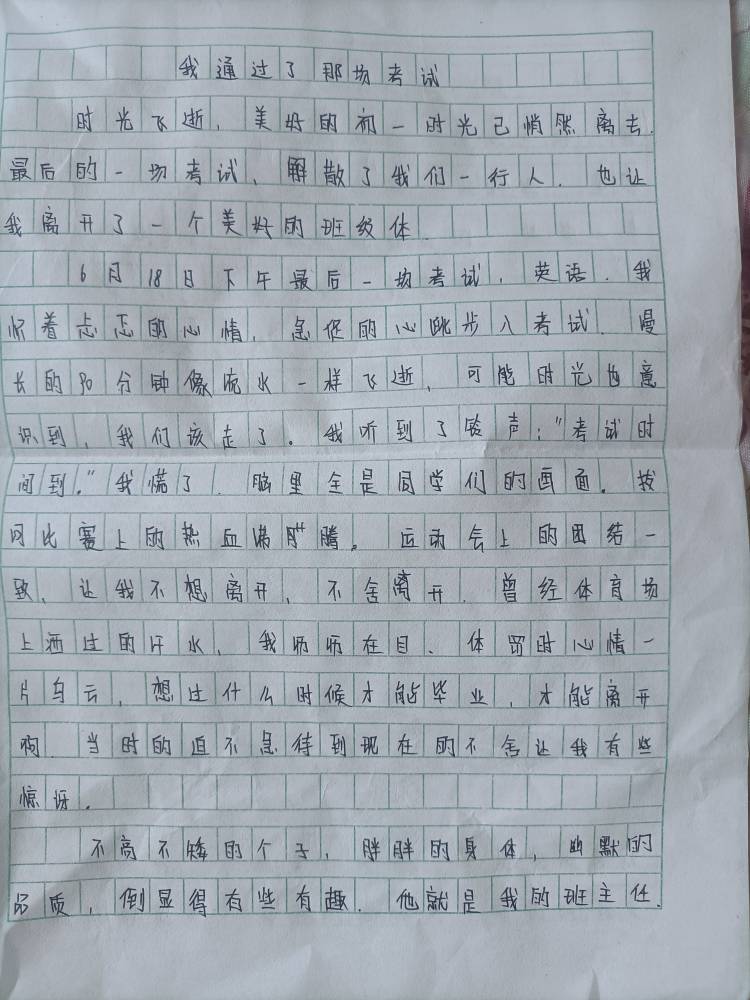 我通过了那场考试
时光飞逝，美好的初一时光已悄然离去.
最后的一场考试，解散了我们一行人.也让
我离开了一个美好的班级体
6月18日下午最后一场考试，英语.我
怀着忐忑的心情，急促的心跳步入考试.漫
长的90分钟像流水一样飞逝，可能时光也意
识到，我们该走了。我听到了铃声："考试时
间到."我慌了.脑里全是同学们的画面。拔
河比赛上的热血沸腾。运动会上的团结一
致，让我不想离开，不舍离开.曾经体育场
上洒过的汗水，我历历在目、体罚时心情一
片乌云，想过什么时候才能毕业，才能离开
当时的迫不急待到现在的不舍让我有些
惊讶.
不高不矮的个子，胖胖的身体，幽默的
品质，倒显得有些有趣.他就是我的班主任.